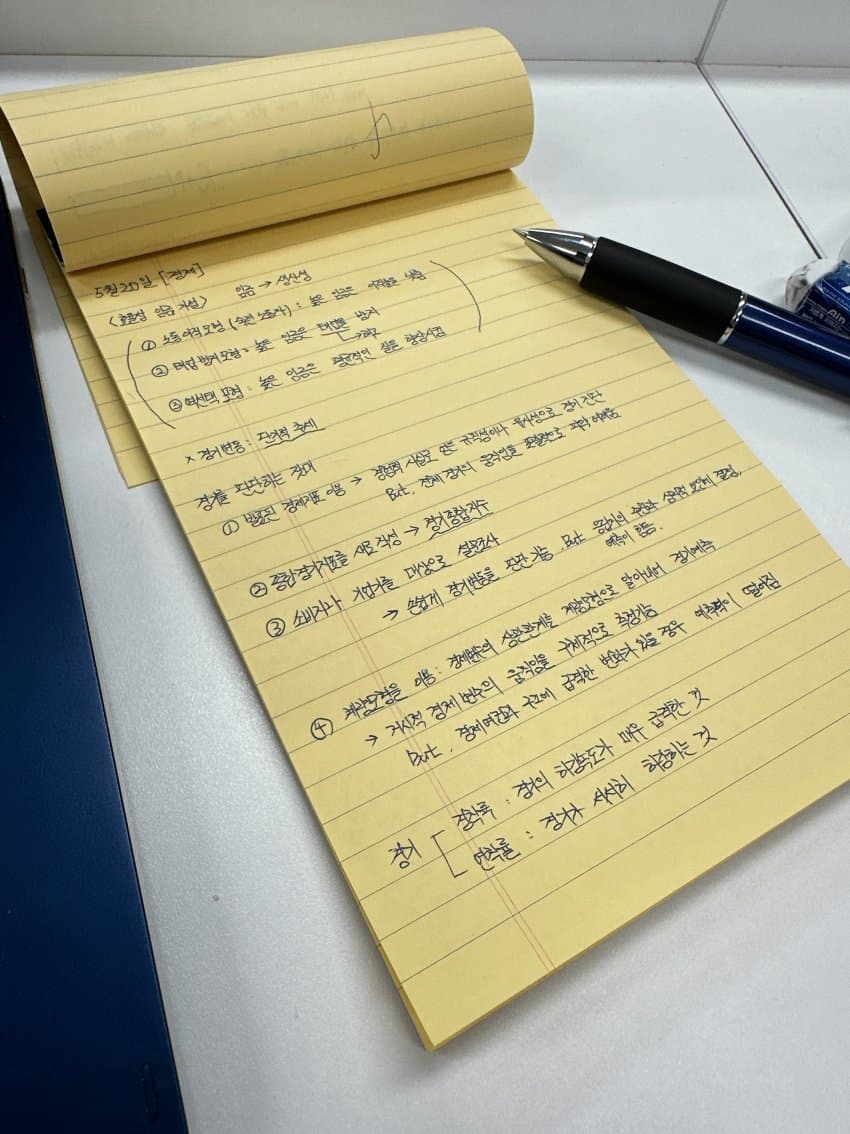 5월 20일 [경제]
<효율성 임금 가설> 임금 → 생산성
① 노동이직모형 (숙련 노동자) : 높은 임금은 이직률을 낮춤
② 태업방지모형 : 높은 임금은 태업을 방지
③ 역선택 모형 : 높은 임금은 평균적인 질을 향상시킴
x 경기변동 : 단기적 추세
경기를 판단하는 잣대
① 발표된 경제지표 이용 → 경험적 사실로 얻은 규칙성이나 유사성으로 경기 진단
But, 전체 경기의 움직임을 포괄적으로 파악 어려움
② 종합경기지표를 새로 작성 → 경기종합지수
③ 소비자나 기업가를 대상으로 설문조사
→ 손쉽게 경기변동을 판단 가능, But 응답가의 주관과 심리적 요인이 결정,
예측이 힘듦.
④ 계량모형을 이용 : 경제변수의 상관관계를 계량모형으로 알아내어 경기예측
→ 거시적 경제변수의 움직임을 구체적으로 측정가능
But, 경제여건과 구조에 급격한 변화가 있을 경우 예측력이 떨어짐
경기 [ 경착륙 : 경기의 하강속도가 매우 급격한 것
연착륙 : 경기가 서서히 하강하는 것